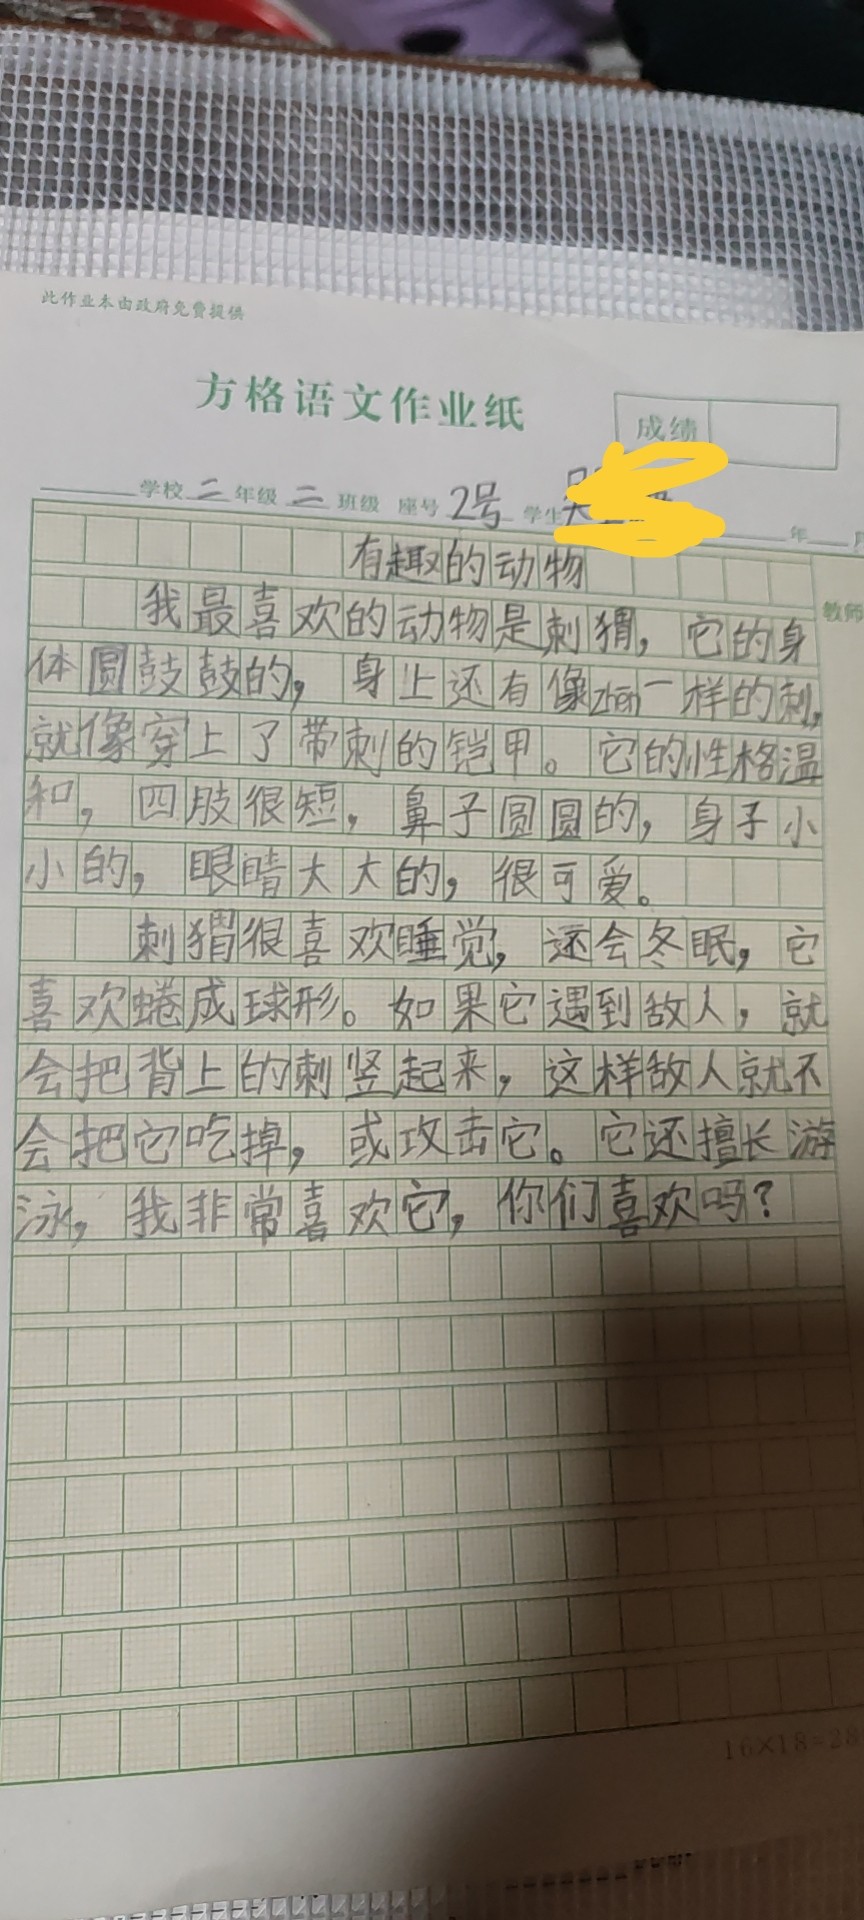 此作业本由政府免费提供
方格语文作业纸
成绩
学校 二 年级 二 班级 座号 2号 学生 年 月
教师
有趣的动物
我最喜欢的动物是刺猬,它的身
体圆鼓鼓的,身上还有像zhēn一样的刺,
就像穿上了带刺的铠甲。它的性格温
和,四肢很短,鼻子圆圆的,身子小
小的,眼睛大大的,很可爱。
刺猬很喜欢睡觉,还会冬眠,它
喜欢蜷成球形。如果它遇到敌人,就
会把背上的刺竖起来,这样敌人就不
会把它吃掉,或攻击它。它还擅长游
泳,我非常喜欢它,你们喜欢吗?
16×18=28